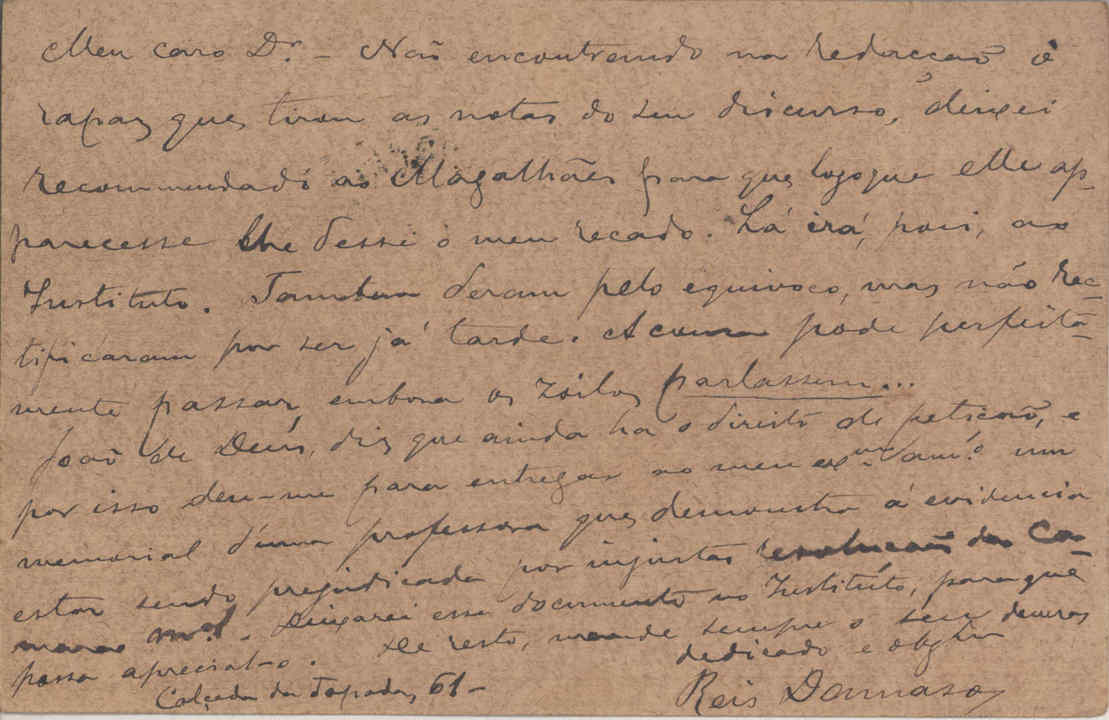 Meu caro Dr. - Não encontrando na redacção o
rapaz que tirou as notas do seu discurso, deixei
recommendado ao Magalhães para que logo que elle ap-
parecesse lhe desse o meu recado. Lá irá, pois, ao
Instituto. Tambem deram pelo equivoco, mas não rec-
tificaram por ser já tarde. A cousa pode perfeita-
mente passar, embora os zoilos parlassem...
João de Deus, diz que ainda ha o direito de petição, e
por isso deu-me para entregar ao meu exmo. amo. um
memorial d'uma professora que demonstra á evidencia
estar sendo prejudicada por injustas resoluções da Ca-
mara mal. Deixarei esse documento no Instituto, para que
possa aprecial-o. De resto, mande sempre o seu deveras
dedicado e obgdo
Calçada da Tapada, 61-
Reis Damaso